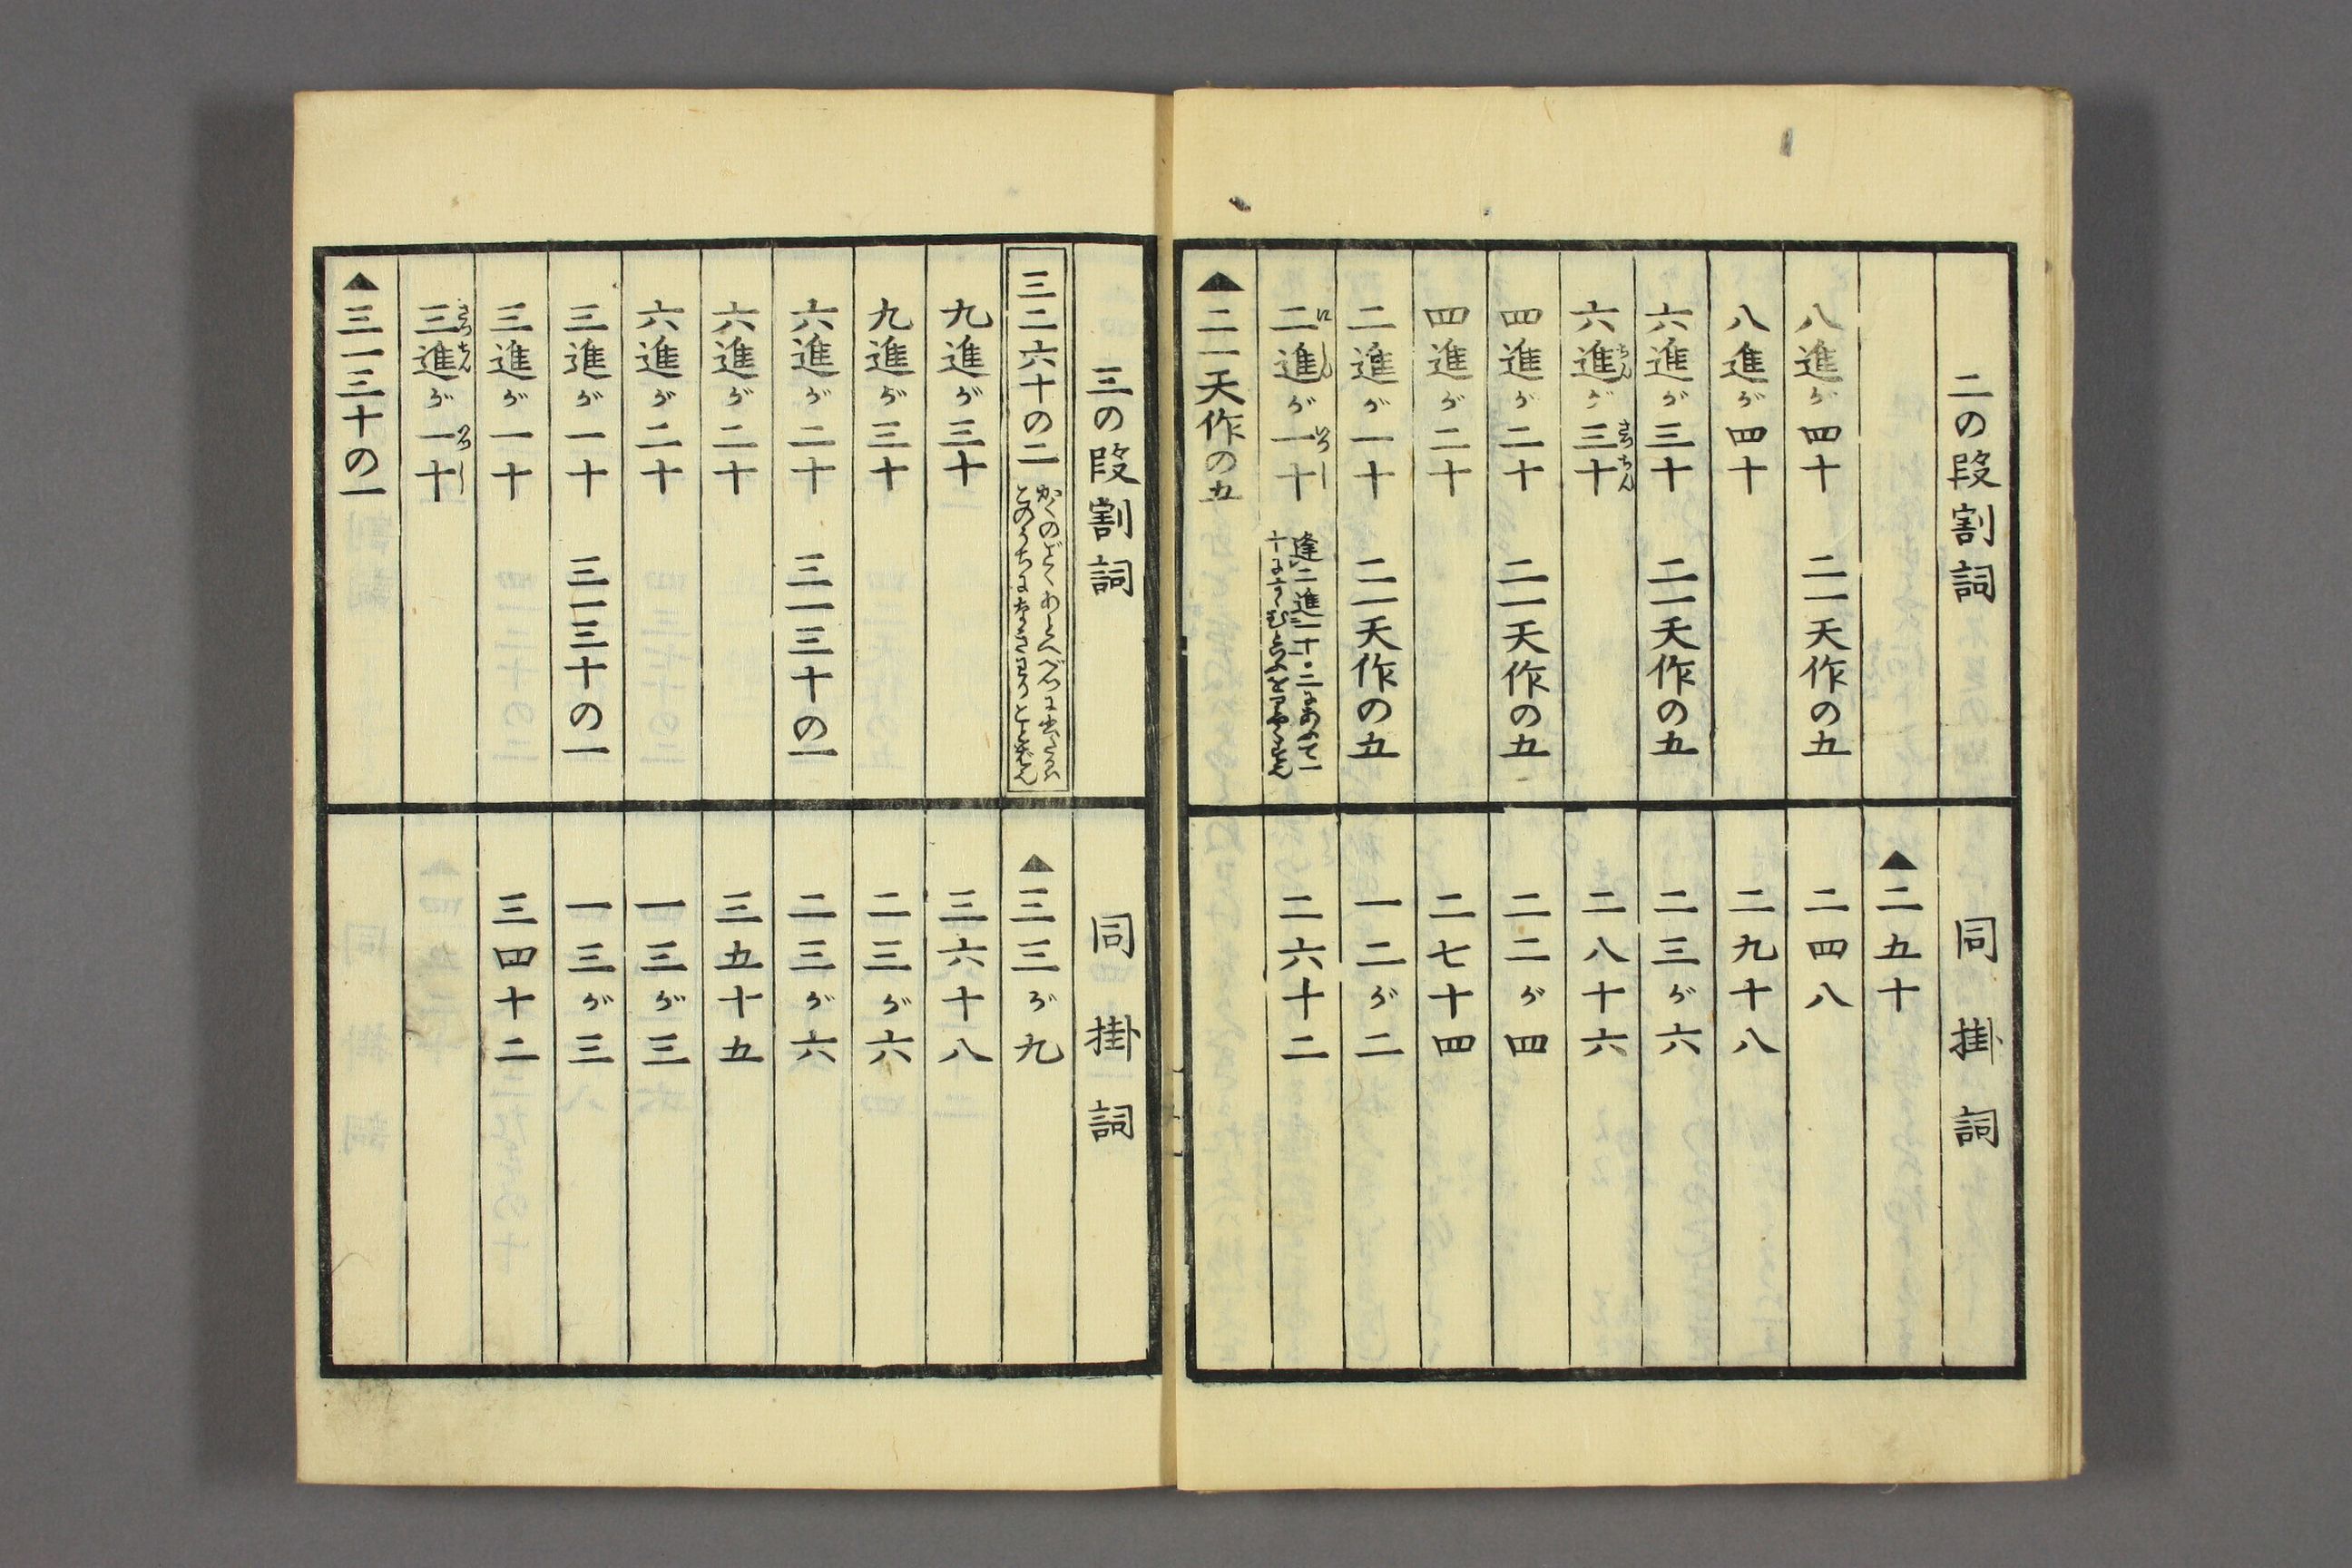 二の段割詞
八進が四十　二一天作の五
八進が四十
六進が三十　二一天作の五
六進が三十
四進が二十　二一天作の五
四進が二十
二進が一十　二一天作の五
二進が一十　逢二進一十・二にあふて一
▲二一天作の五
同掛詞
▲二五十
二四八
二九十八
二三が六
二八十六
二二が四
二七十四
一二が二
二六十二
三の段割詞
三二六十の二　かくのごとく
このうちに
九進が三十
九進が三十
六進が二十　三一三十の一
六進が二十
六進が二十
三進が一十　三一三十の一
三進が一十
三進が一十
▲三一三十の一
同掛詞
▲三三が九
三六十八
二三が六
二三が六
三五十五
一三が三
一三が三
三四十二